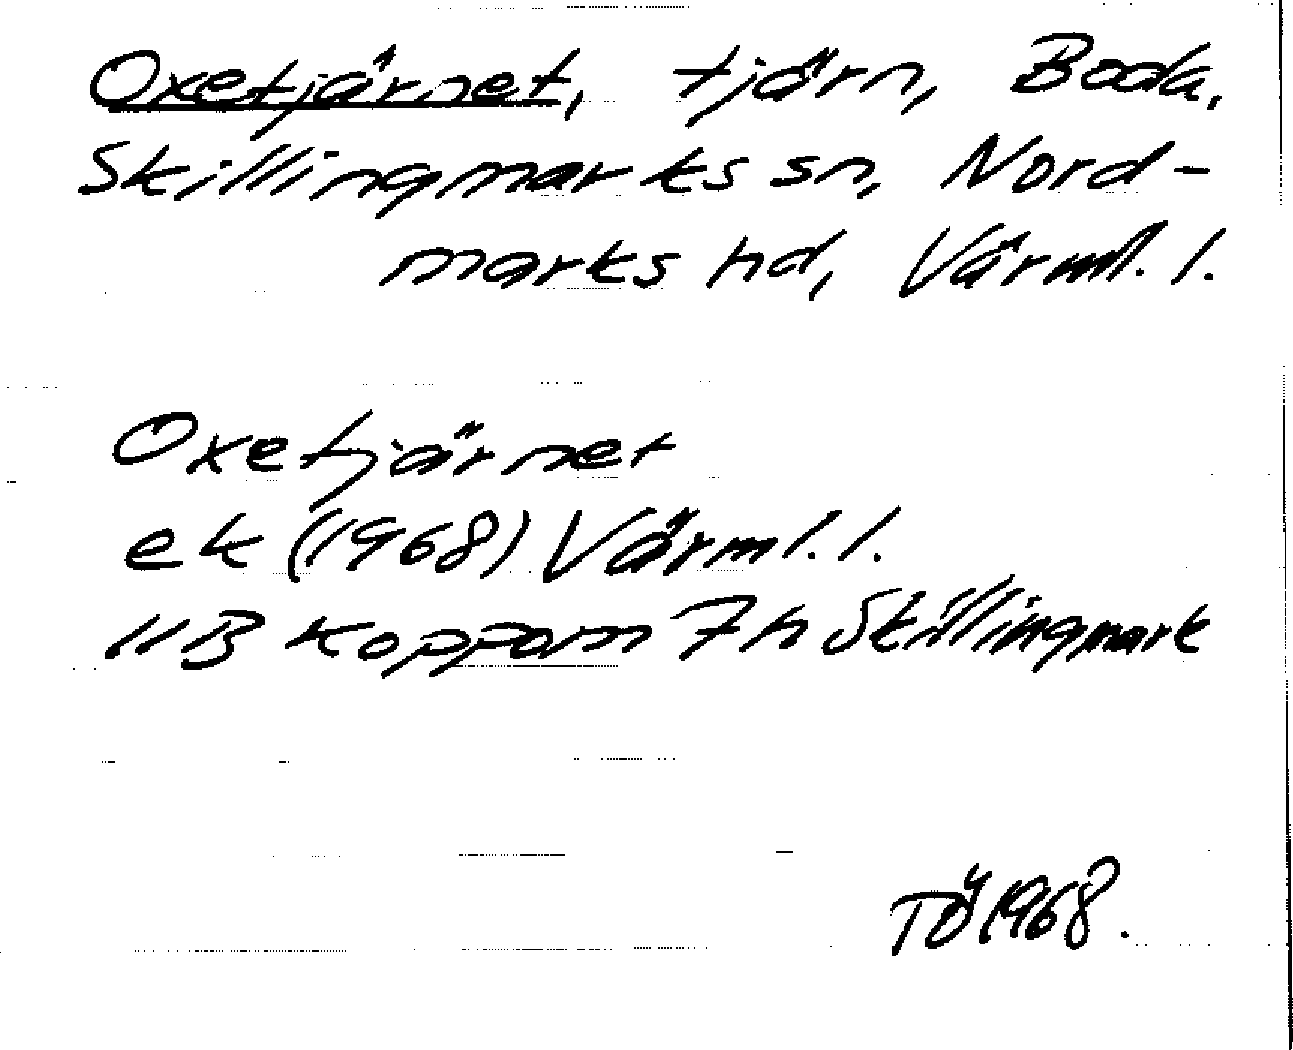 Oxetjärnet, tjärn, Boda,
Skillingmarks sn, Nord-
marks hd, Värml. l.
Oxetjärnet
ek (1968) Värml. l.
11B Koppom 7h Skillingmark
TÖ 1968.